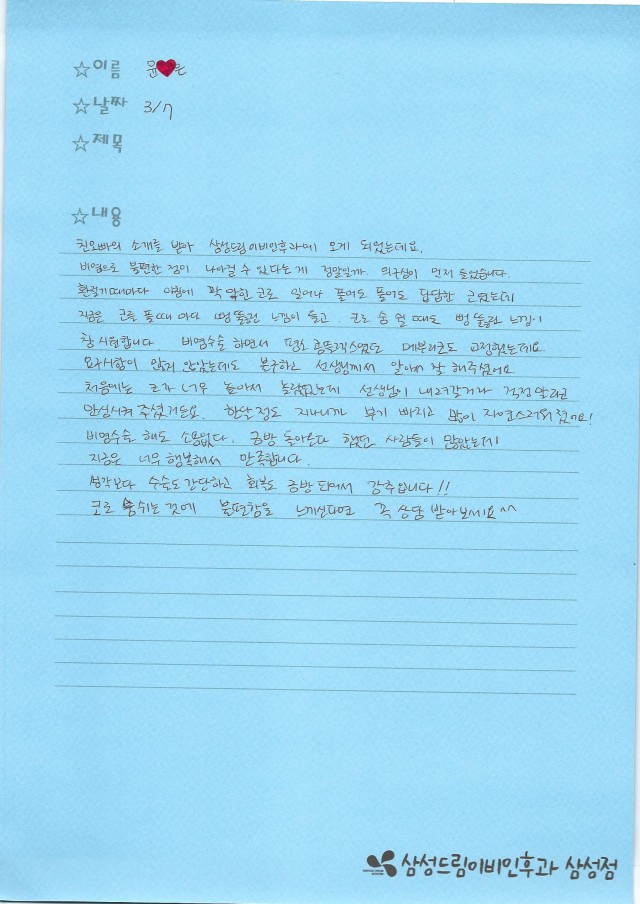 ☆이름 윤♥은
☆날짜 3/7
☆제목
☆내용
친오빠의 소개를 받아 삼성드림이비인후과에 오게 되었는데요.
비염으로 불편한 점이 나아질 수 있다는게 정말일까. 의구심이 먼저 들었습니다.
환절기때마다 아침에 꽉 막힌 코로 일어나 풀어도 풀어도 답답한 코였는데
지금은 코를 풀때 마다 뻥 뚫린 느낌이 들고. 코로 숨 쉴 때도 뻥 뚫린 느낌이
참 시원합니다. 비염수술 하면서 평소 콤플렉스였던 매부리코도 교정했는데요
요구사항이 많지 않았는데도 불구하고 선생님께서 알아서 잘 해주셨어요
처음에는 코가 너무 높아서 놀랐었는데 선생님이 내려갈거라 걱정 말라고
안심시켜 주셨거든요. 한달 정도 지나니까 부기 빠지고 많이 자연스러워졌어요!
비염수술 해도 소용없다. 금방 돌아온다 했던 사람들이 많았는데
지금은 너무 행복해서 만족합니다.
생각보다 수술도 간단하고 회복도 금방 되어서 강추입니다!!
코로 숨쉬는 것에 불편함을 느끼신다면 꼭 상담 받아보세요^^
삼성드림이비인후과 삼성점